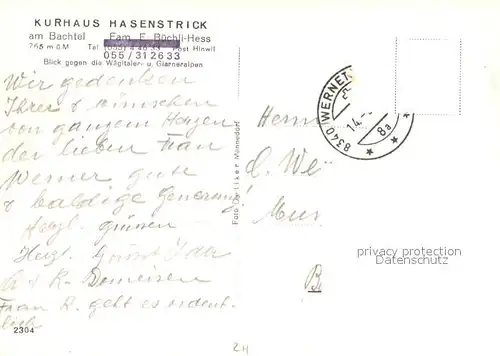 KURHAUS HASENSTRICK
am Bachtel Fam. E. Büchli-Hess
765 m ü M Tel. Post Hinwil
055/312633
Blick gegen die Wägitaler- u. Glarneralpen
Wir gedenken
Ihrer & wünschen
von ganzem Herzen
der lieben Frau
Werner gute
& baldige Genesung!
Herzl. grüssen
Herzl. Ida
& R.
Frau R. geht es ordent
lich
2304
Foto Dalliker Männedorf
8340 WERNET
14.
8a
Herrn
O. We
Mur
B
privacy protection
Datenschutz
24